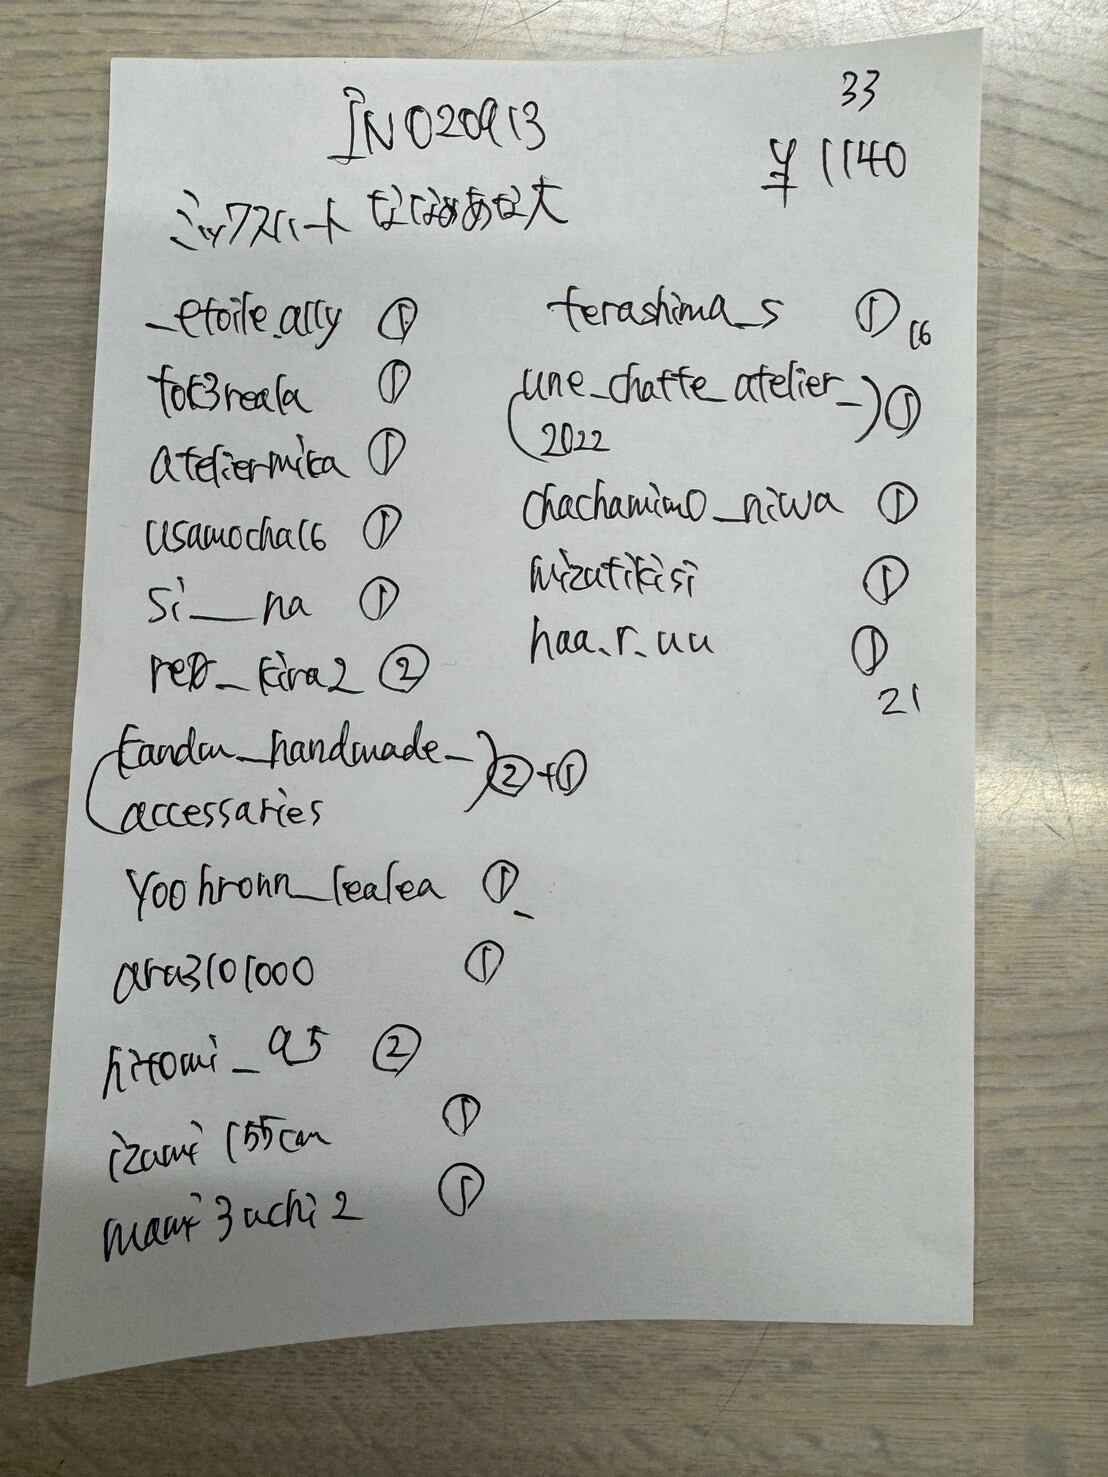 INO20913
33
¥1140
ミックスハート ななめあな大
_etoile.ally ①
tot3reala ①
ateliermika ①
usamocha16 ①
si__na ①
_kira2 ②
_handmade_
accessaries ②+①
yoohronn_lealea ①
ara3101000 ①
hitomi_95 ②
izumi155cm ①
mami3uchi2 ①
terashima_s ① 16
une_chatte_atelier_
2022 ①
chachamimo_niwa ①
mizutikisi ①
haa.r.uu ①
21